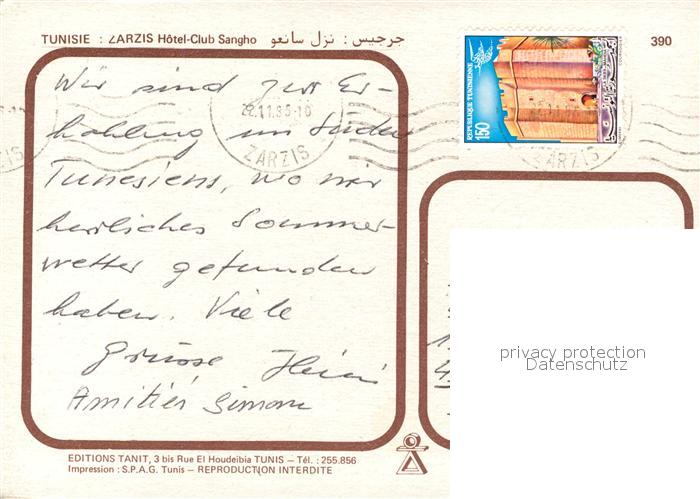 TUNISIE : ZARZIS Hôtel-Club Sangho جرجيس : نزل سانغو
390
REPUBLIQUE TUNISIENNE
150
22.11.85-18
ZARZIS
ZARZIS
Wir sind zur Er-
hohlung im Süden
Tunesiens, wo wir
herrliches Sommer-
wetter gefunden
haben. Viele
Grüsse Heini
Amitiés Simone
privacy protection
Datenschutz
EDITIONS TANIT, 3 bis Rue El Houdeibia TUNIS – Tél. : 255.856
Impression : S.P.A.G. Tunis – REPRODUCTION INTERDITE